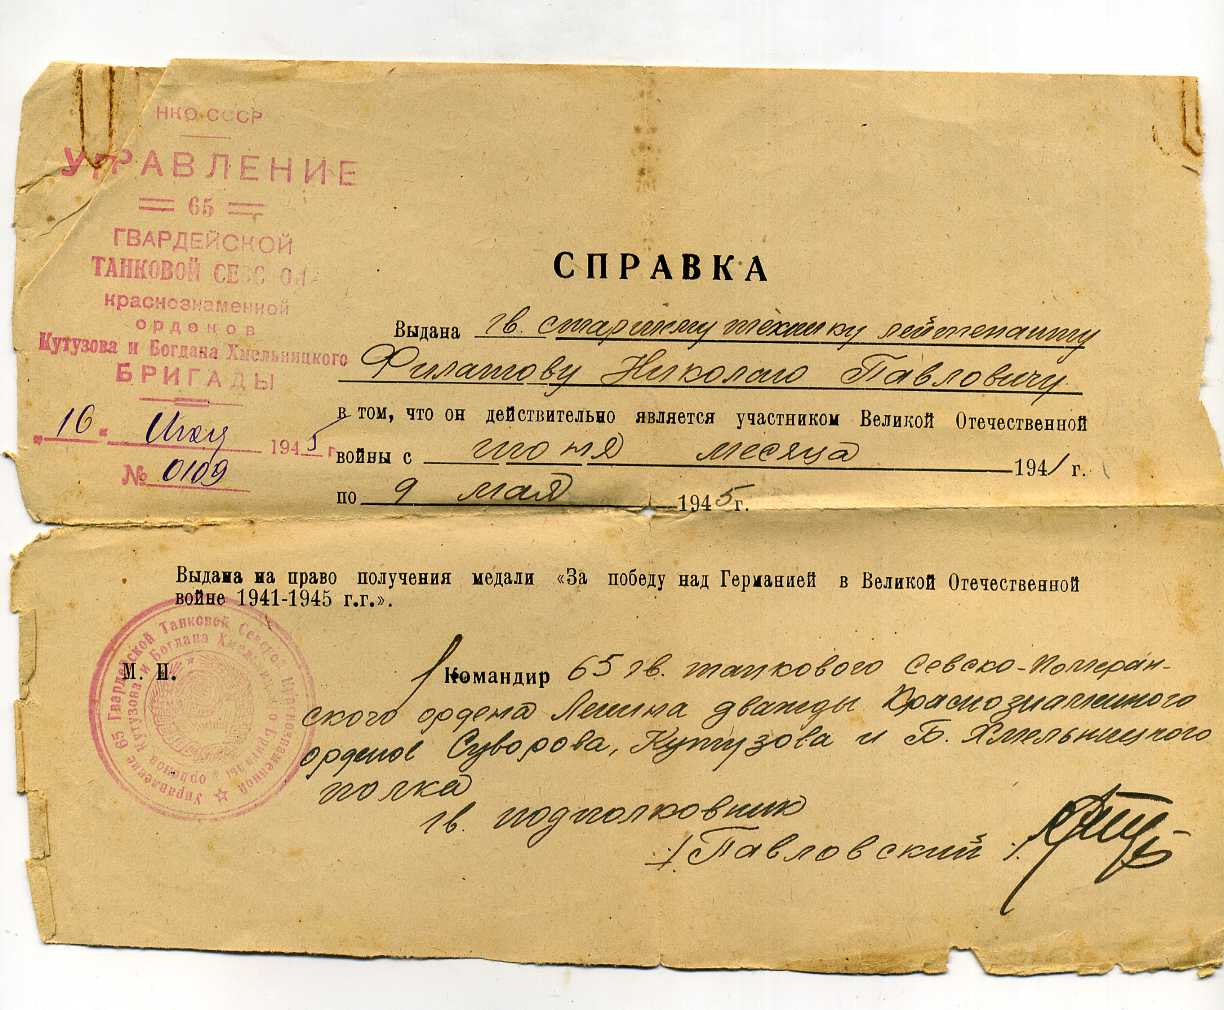 НКО СССР
УПРАВЛЕНИЕ
65
ГВАРДЕЙСКОЙ
ТАНКОВОЙ
краснознаменной
орденов
Кутузова и Богдана Хмельницкого
БРИГАДЫ
„16" 1945 г.
№ 0109
СПРАВКА
Выдана гв. старшему технику лейтенанту
Филатову Николаю Павловичу
в том, что он действительно является участником Великой Отечественной
войны с июня месяца 1941 г.
по 9 мая 1945 г.
Выдана на право получения медали «За победу над Германией в Великой Отечественной
войне 1941-1945 г.г.».
М. П.
Командир 65 гв. танкового Севско-Померан-
ского ордена Ленина дважды Краснознаменного
орденов Суворова, Кутузова и Б. Хмельницкого
полка
гв. подполковник
/Павловский/
Управление 65 Гвардейской Танковой Севской Краснознаменной
орденов Кутузова и Богдана Хмельницкого Бригады